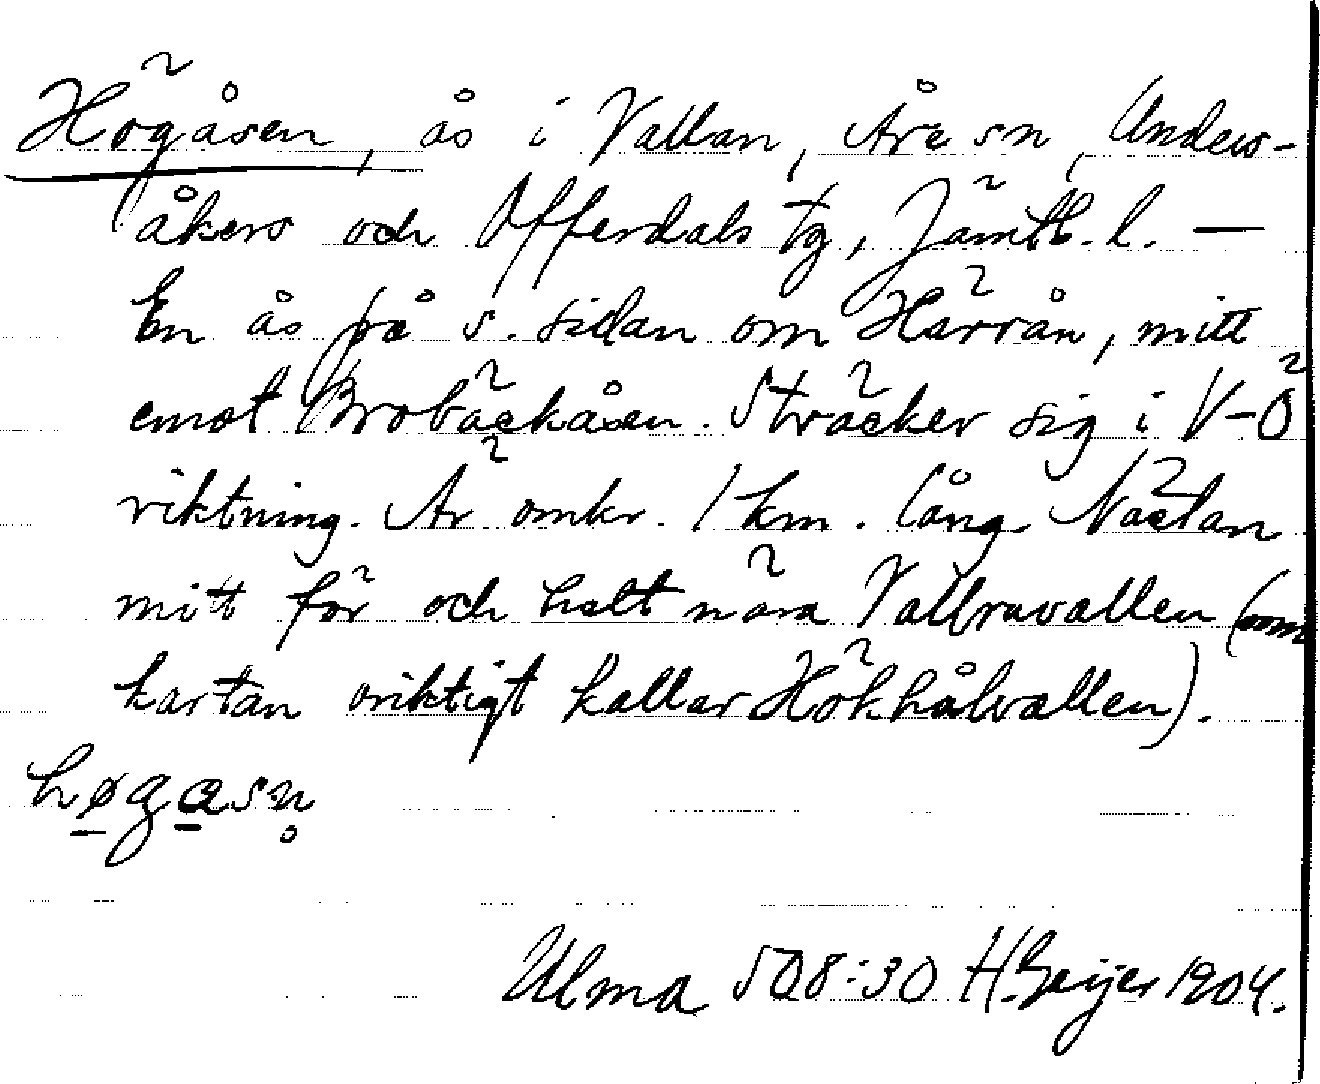 Högåsen, ås i Vallan, Åre sn, Unders-
åkers och Offerdals tg, Jämtl. l. —
En ås på s. sidan om Härrån, mitt
emot Brobäckåsen. Sträcker sig i V–Ö
riktning. Är omkr. 1 km. lång. Nästan
mitt för och helt nära Vallravallen (som
kartan oriktigt kallar Hökhålvallen).
høgasn̥
Ulma 508:30 H. Geijer 1904.